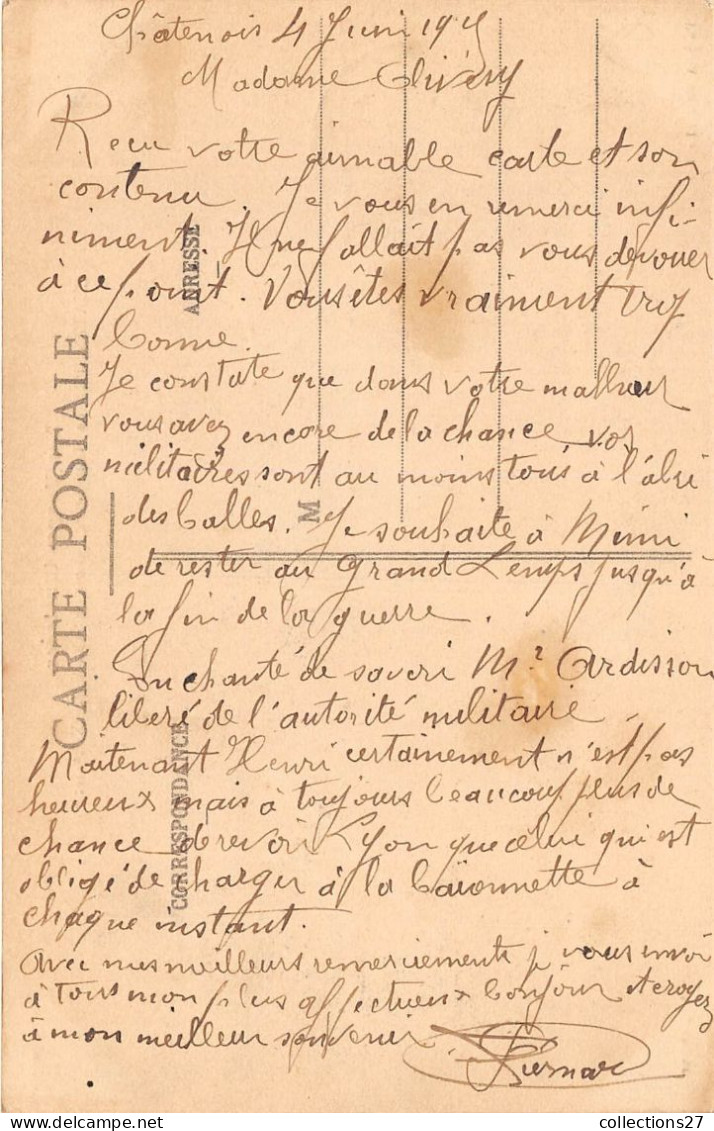 Châtenois 4 Juin 1915
Madame Olivéry
Recu votre aimable carte et son
contenu. Je vous en remerci infi-
niment. Il ne fallait pas vous dévouer
à ce point. Vous êtes vraiment trop
bonne.
Je constate que dans votre malheur
vous avez encore de la chance vos
militaires sont au moins tous à l'abri
des balles. Je souhaite à Mimi
de rester au Grand Lemps jusqu'à
la fin de la guerre.
Enchanté de savoir Mr Ardisson
liberé de l'autorité militaire.
Maintenant Henri certainement n'est pas
heureux mais à toujours beaucoup plus de
chance de revoir Lyon que celui qui est
obligé de charger à la baïonnette à
chaque instant.
Avec mes meilleurs remerciements je vous envoi
à tous mon plus affectueux bonjour et croyez
à mon meilleur souvenir
CARTE POSTALE
CORRESPONDANCE
ADRESSE
M
collections27